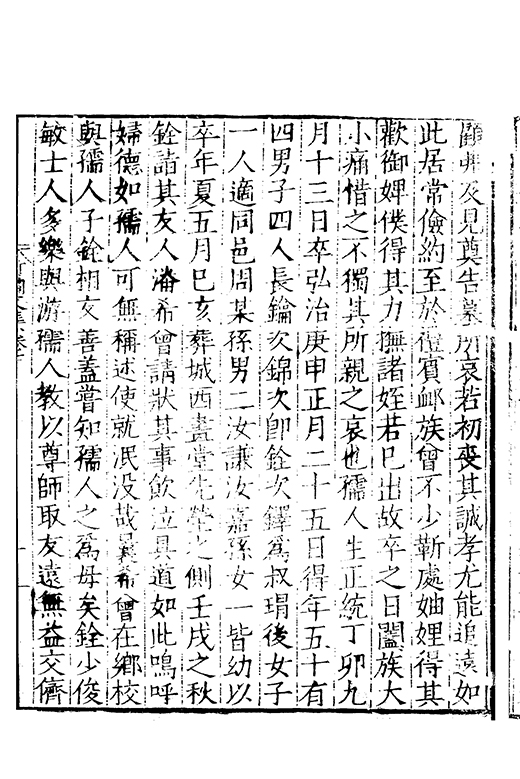 顧弗及見奠告墓所哀若初喪其誠孝尤能追遠如
此居常儉約至於禮賓䘏族曾不少靳處妯娌得其
歡御婢僕得其力撫諸姪若巳出故卒之日闔族大
小痛惜之不獨其所親之哀也孺人生正統丁卯九
月十三日卒弘治庚申正月二十五日得年五十有
四男子四人長鑰次錦次卽銓次鐸爲叔瑁後女子
一人適同邑周某孫男二汝謙汝嘉孫女一皆幼以
卒年夏五月巳亥葬城西畫堂先塋之側壬戌之秋
銓詣其友人潘希曾請狀其事飲泣具道如此嗚呼
婦德如孺人可無稱述使就泯没哉曩希曾在鄉校
與孺人子銓相友善蓋嘗知孺人之爲母矣銓少俊
敏士人多樂與游孺人教以尊師取友遠無益交儕